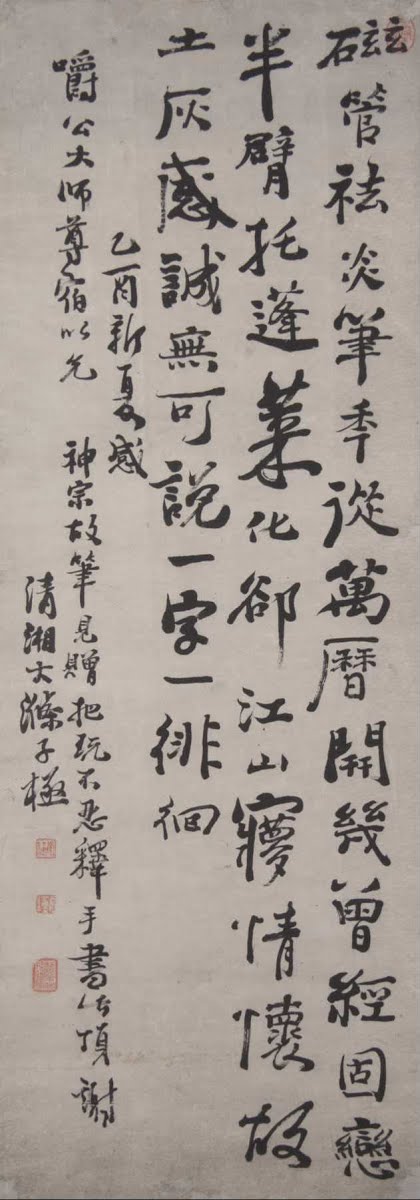 磁管祛炎筆秊從萬曆開幾曾經固戀
半臂托蓬萊化卻江山夢情懷故
土灰感誠無可說一字一徘徊
乙酉新夏感
嚼公大師尊宿以先
神宗故筆見贈把玩不忍釋手書此頂謝
清湘大滌子極